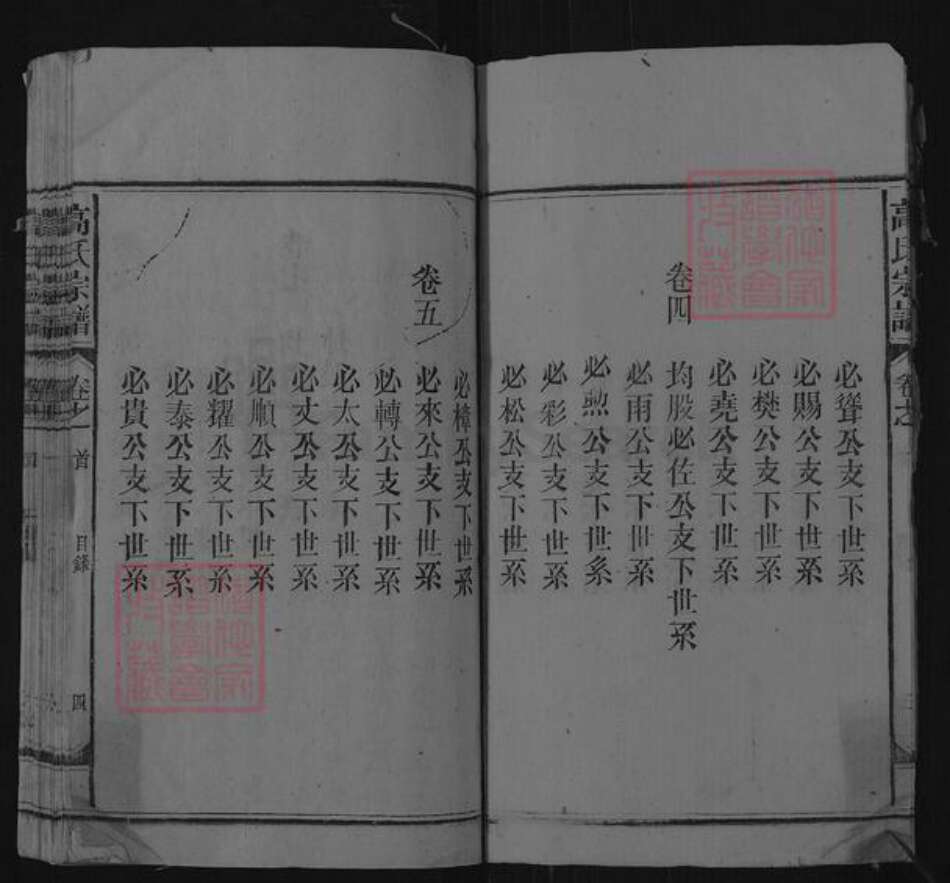 高氏宗譜
必聳公支下世系
必賜公支下世系
必樊公支下世系
必堯公支下世系
卷四
均股必佐公支下世系
必雨公支下世系
必勲公支下世系
必彩公支下世系
必松公支下世系
必樟公支下世系
卷五
必來公支下世系
必轉公支下世系
必太公支下世系
必丈公支下世系
必順公支下世系
必耀公支下世系
必泰公支下世系
必貴公支下世系
高氏宗譜
卷之
首
目錄
四